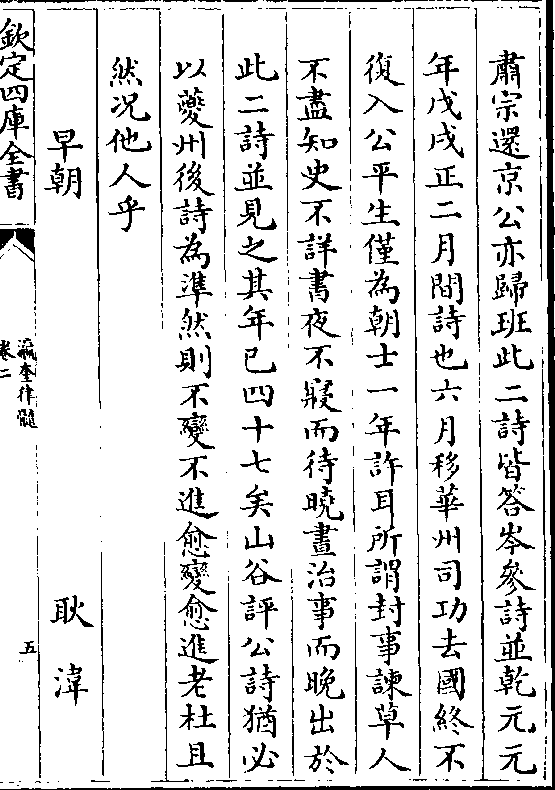 肅宗還京公亦歸班此二詩皆答岑參詩並乾元元
年戊戌正二月間詩也六月移華州司功去國終不
復入公平生僅為朝士一年許耳所謂封事諫草人
不盡知史不詳書夜不寢而待曉晝治事而晚出於
此二詩並見之其年已四十七矣山谷評公詩猶必
以夔州後詩為準然則不變不進愈變愈進老杜且
然况他人乎
早朝 耿湋
欽定四庫全書
瀛奎律髓
卷二
五